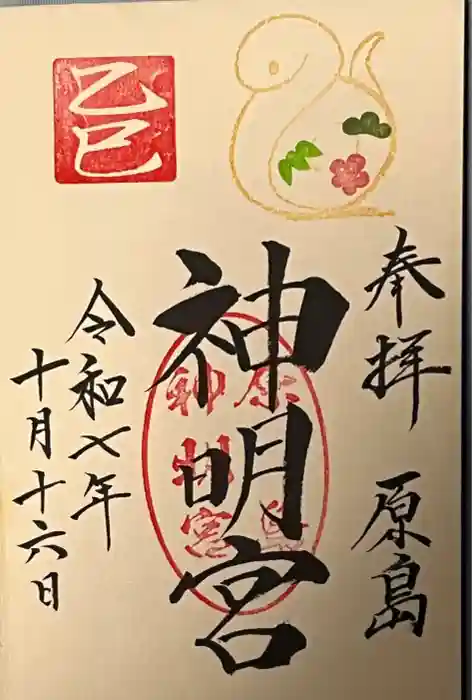 奉拝 原島
神明宮
原島
神明宮
令和七年
十月十六日
乙巳